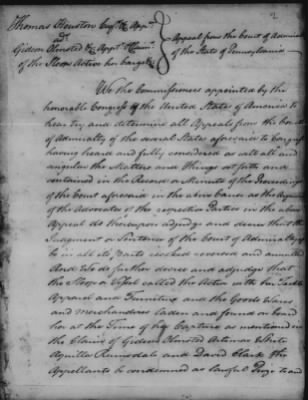 Thomas Houston Esqr &c Appee
ads
Gideon Olmsted &c Appts Claimts
of the Sloop Active her Cargo &c
Appeal from the Court of Admiralty
of the State of Pennsylvania
We the Commissioners appointed by the
honorable Congress of the United States of America to
hear try and determine all Appeals from the Courts
of Admiralty of the several States aforesaid to Congress
having heard and fully considered as well all and
singular the Matters and Things set forth and
contained in the Record or Minutes of the Proceedings
of the Court aforesaid in the above Cause as the Arguments
of the Advocates of the respective Parties in the above
Appeal do thereupon adjudge and decree that the
Judgment or Sentence of the Court of Admiralty aforesaid
be in all its Parts revoked reversed and annulled
And We do further decree and adjudge that
the Sloop or Vessel called the Active with her Tackle
Apparel and Furniture and the Goods Wares
and Merchandizes laden and found on board
her at the Time of her Capture as mentioned in
the Claim of Gideon Olmsted Artemas White
Aquilla Rumsdale and David Clark the
Appellants be condemned as lawful Prize